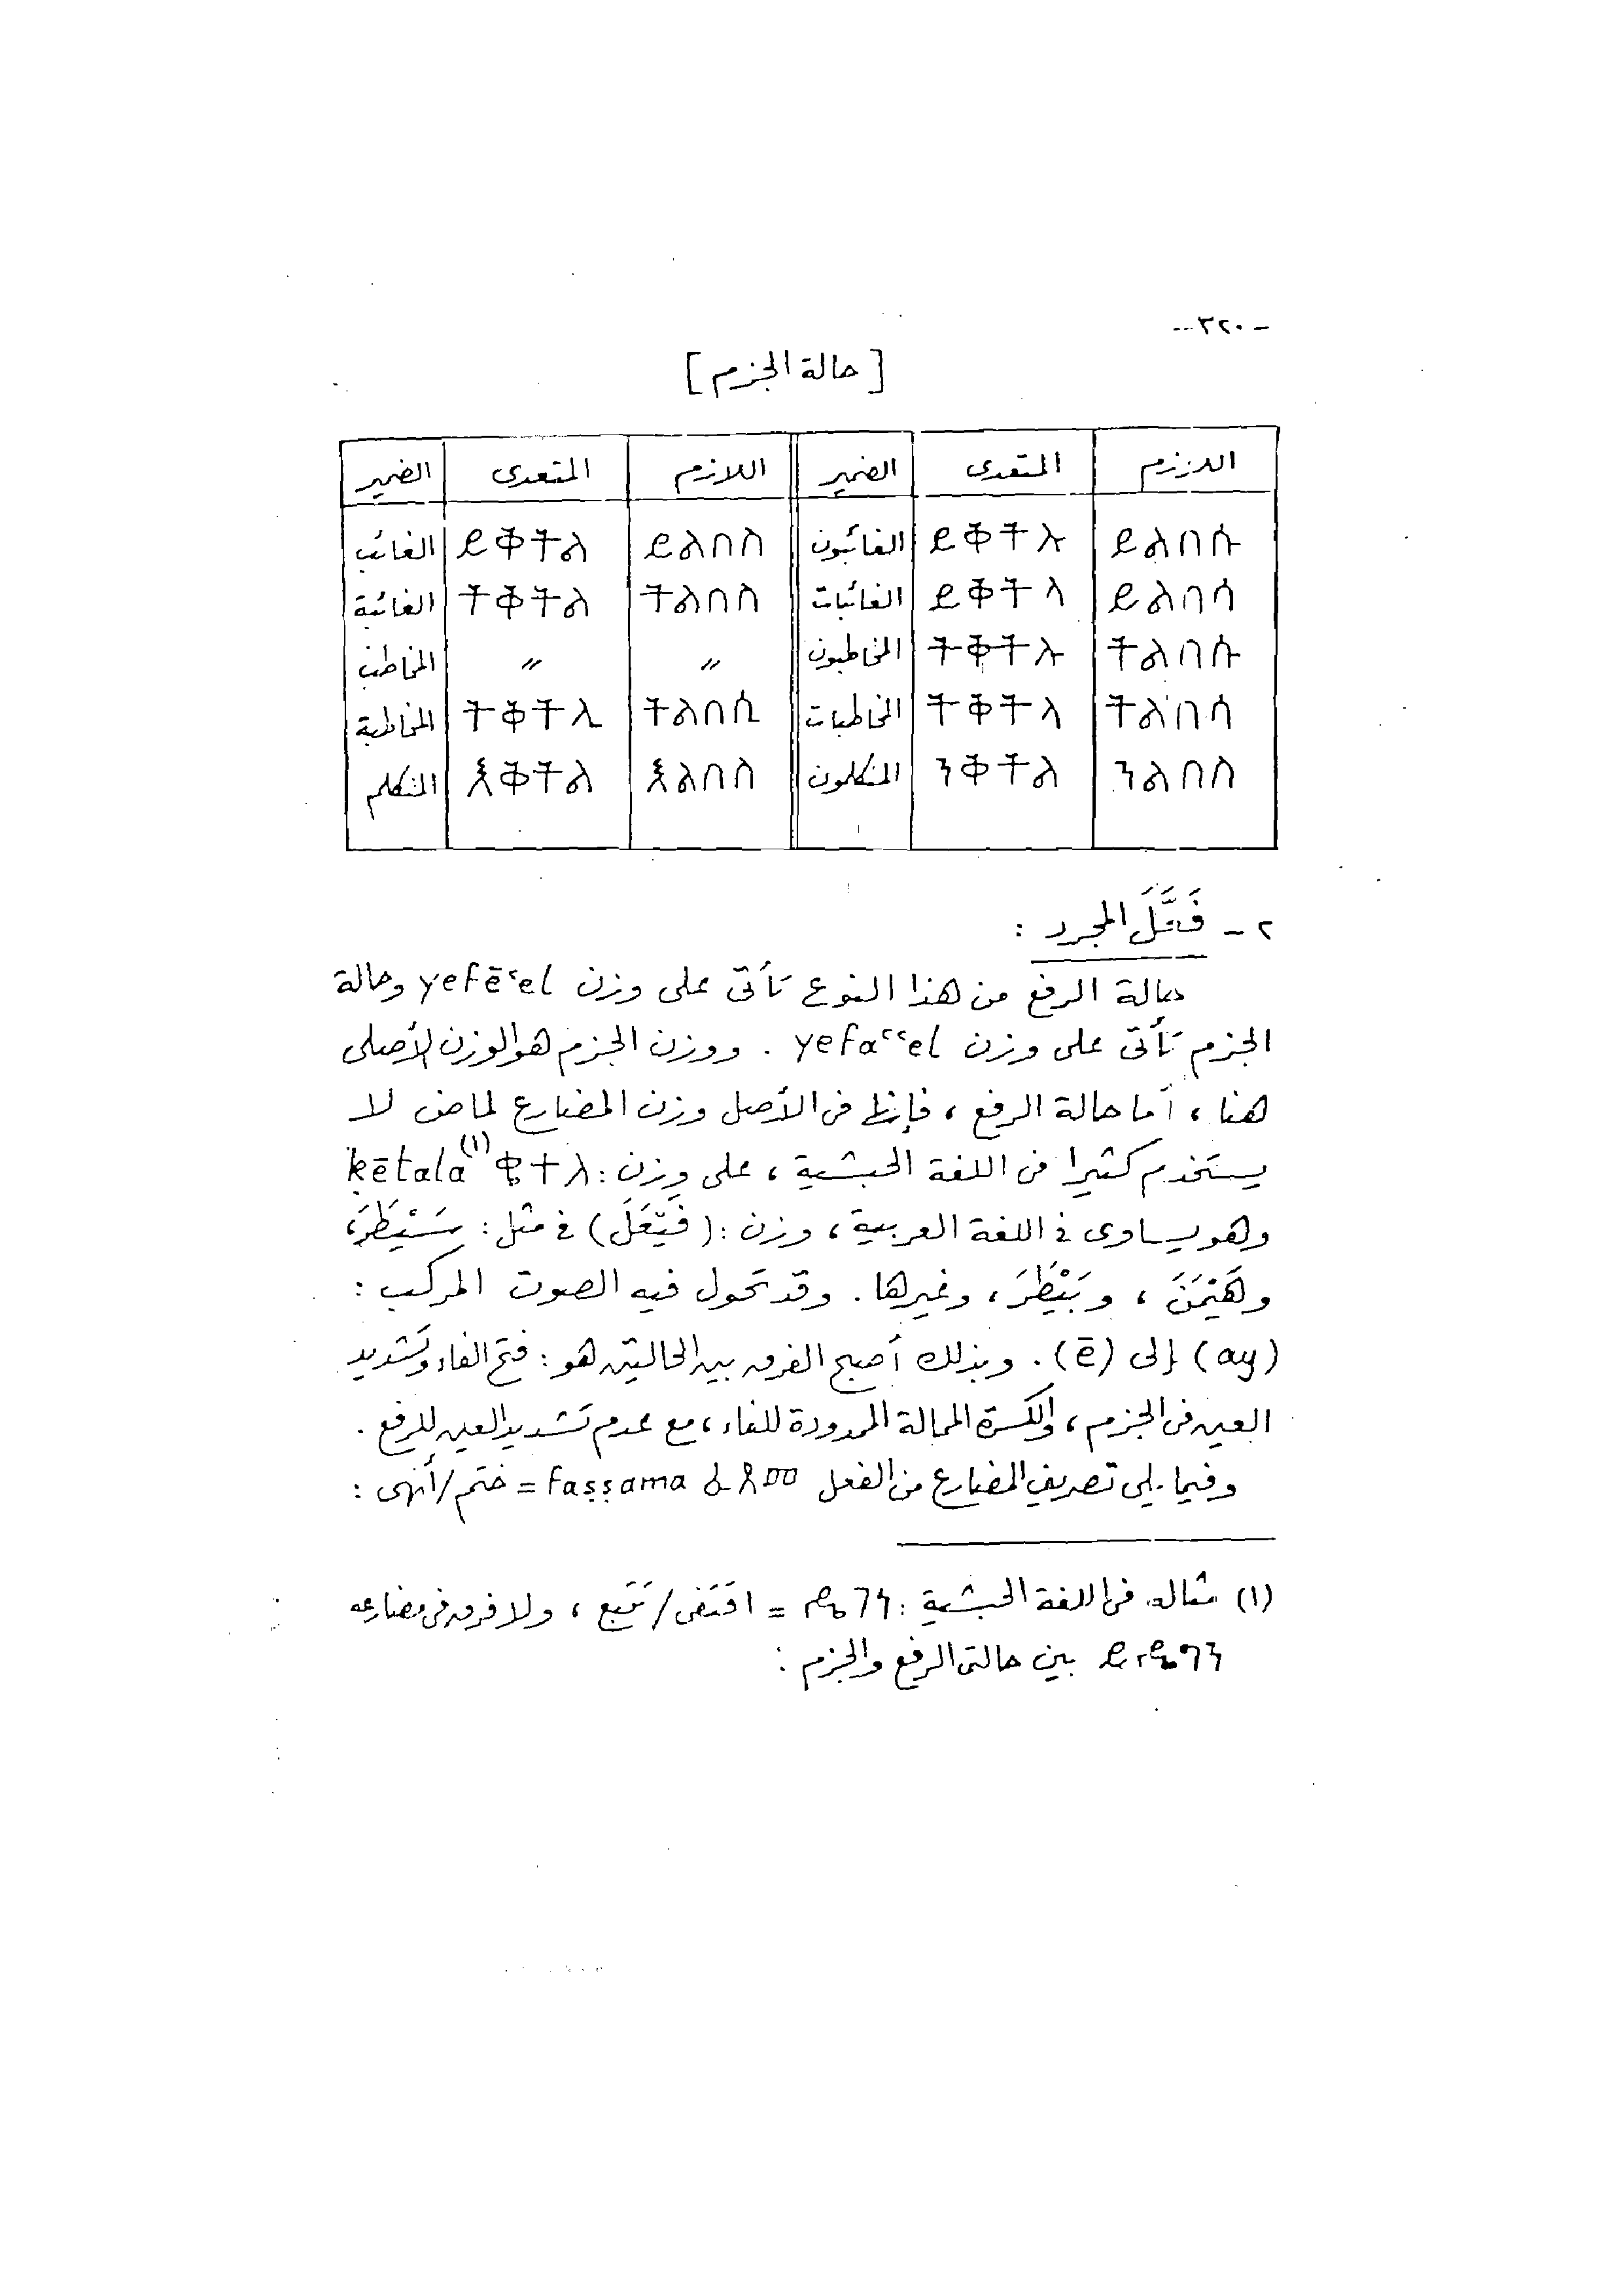 - ٣٢٠ -
[ حالة الجزم ]
الضمير | المتعدى | اللازم | الضمير | المتعدى | اللازم
الغائب | ይቅትል | ይልበስ | الغائبون | ይቅትሉ | ይልበሱ
الغائبة | ትቅትል | ትልበስ | الغائبات | ይቅትላ | ይልበሳ
المخاطب | 〃 | 〃 | المخاطبون | ትቅትሉ | ትልበሱ
المخاطبة | ትቅትሊ | ትልበሲ | المخاطبات | ትቅትላ | ትልበሳ
المتكلم | እቅትል | እልበስ | المتكلمون | ንቅትል | ንልበስ
٢ - فَعَّلَ المجرد :
حالة الرفع من هذا النوع تأتى على وزن yefēʿel وحالة
الجزم تأتى على وزن yefaʿʿel . ووزن الجزم هو الوزن الأصلى
هنا ، أما حالة الرفع ، فإنها فى الأصل وزن المضارع لماض لا
يستخدم كثيرا فى اللغة الحبشية ، على وزن : ቄተለ (١) ḳētala
وهو يساوى فى اللغة العربية ، وزن : (فَيْعَلَ) فى مثل : سَيْطَرَ ،
وهَيْمَنَ ، وبَيْطَرَ ، وغيرها . وقد تحول فيه الصوت المركب :
(ay) إلى (ē) . وبذلك أصبح الفرق بين الحالتين هو : فتح الفاء وتشديد
العين فى الجزم ، والكسرة الممالة الممدودة للفاء ، مع عدم تشديد العين للرفع .
وفيما يلى تصريف المضارع من الفعل ፈጸመ faṣṣama = ختم/أنهى :
(١) مثاله فى اللغة الحبشية : ዴገነ = اقتفى/تتبع ، ولا فرق فى مضارعه
ይዴግን بين حالتى الرفع والجزم :